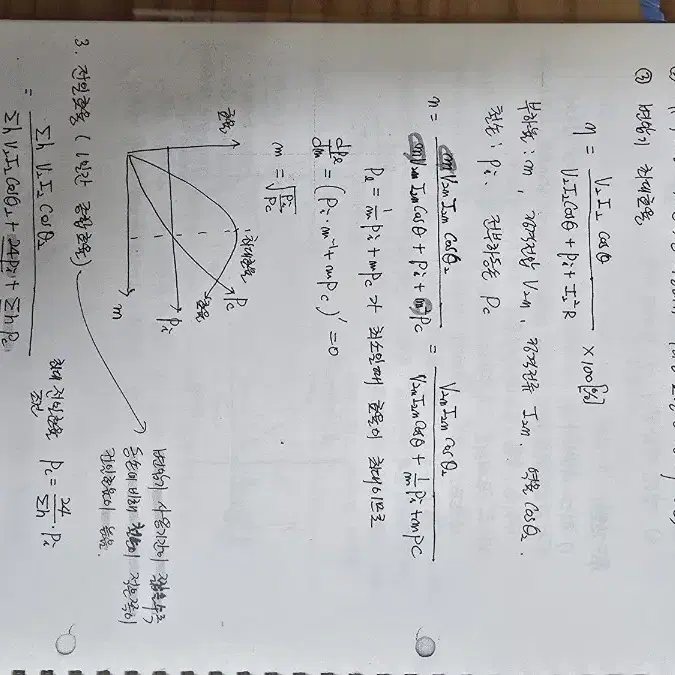 ③ 변압기 최대효율
η = V₂I₂ cosθ / (V₂I₂cosθ + Pi + I₂²R) × 100[%]
부하율 : m , 정격전압 V₂n , 정격전류 I₂n , 역률 cosθ₂
철손 : Pi 전부하동손 Pc
η = mV₂nI₂n cosθ₂ / (mV₂nI₂ncosθ + Pi + m²Pc) = V₂nI₂n cosθ₂ / (V₂nI₂ncosθ + 1/m Pi + mPc)
Pl = 1/m Pi + mPc 가 최소일때 효율이 최대이므로
dPl/dm = (Pi·m⁻¹ + mPc)′ = 0
m = √(Pi/Pc)
효율
최대효율
Pc
효율
Pi
m
3. 전일효율 (1일간 종합효율)
변압기 사용시간이 짧을수록
동손에 비해 철손이 적을수록
전일효율이 높음.
= Σh V₂I₂ cosθ₂ / (Σh V₂I₂cosθ₂ + 24Pi + Σh Pc)
최대 전일효율 조건
Pc = 24/Σh · Pi